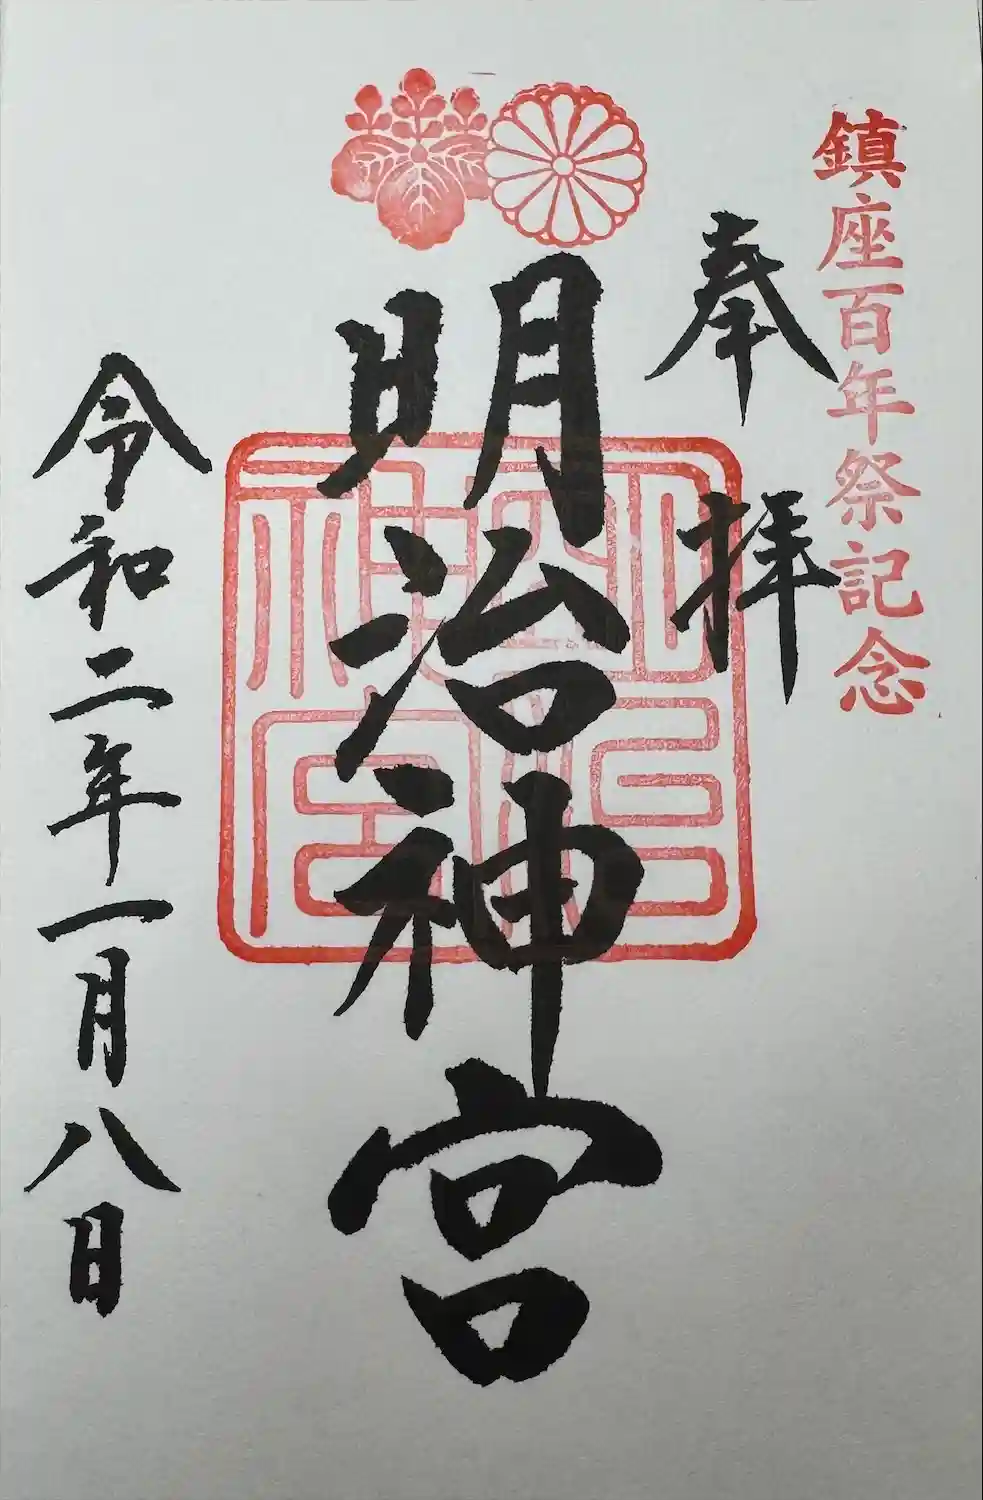 鎮座百年祭記念
奉拝
明治神宮
令和二年一月八日
明治神宮